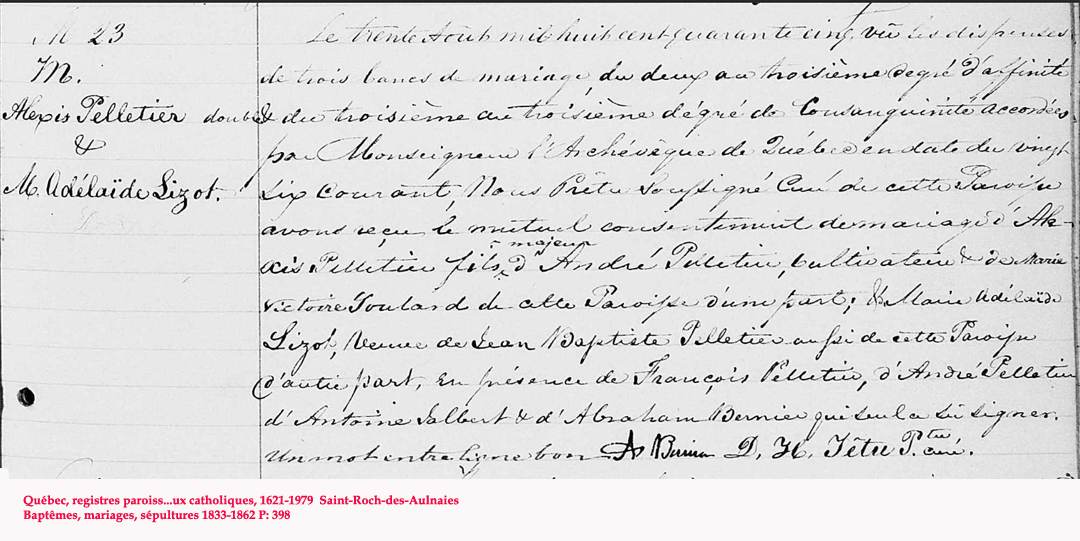 M 23
M.
Alexis Pelletier
&
M. Adélaïde Lizot.
Le trente Août mil huit cent quarante cinq, vû les dispenses
de trois bancs de mariage, du deux au troisième degré d'affinité
double & du troisième au troisième dégré de Consanguinité accordées
par Monseigneur l'Archévêque de Québec en date du vingt
six courant, Nous Prêtre soussigné Curé de cette Paroisse
avons reçu le mutuel consentement de mariage d'Ale-
xis Pelletier fils majeur d'André Pelletier, cultivateur & de Marie
Victoire Goulard de cette Paroisse d'une part; & Marie Adélaïde
Lizot, Veuve de Jean Baptiste Pelletier aussi de cette Paroisse
d'autre part, en présence de François Pelletier, d'André Pelletier
d'Antoine Jalbert & d'Abraham Bernier qui seul a su signer.
Un mot entre ligne bon A Bernier D. H. Têtu Ptre curé.
Québec, registres paroiss...ux catholiques, 1621-1979 Saint-Roch-des-Aulnaies
Baptêmes, mariages, sépultures 1833-1862 P: 398